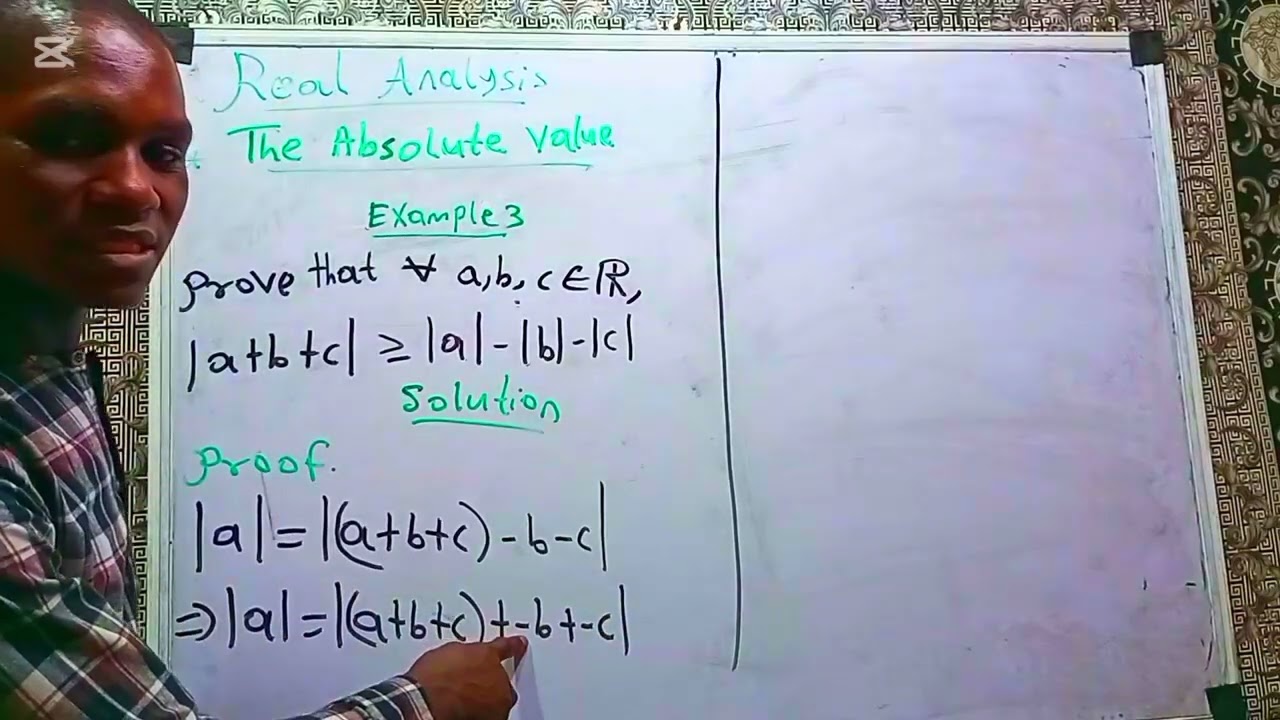 Real Analysis
The Absolute Value
Example 3
prove that ∀ a,b, c ∈ ℝ,
|a+b+c| ≥ |a| - |b| - |c|
Solution
proof.
|a| = |(a+b+c) - b - c|
⇒ |a| = |(a+b+c) + -b + -c|